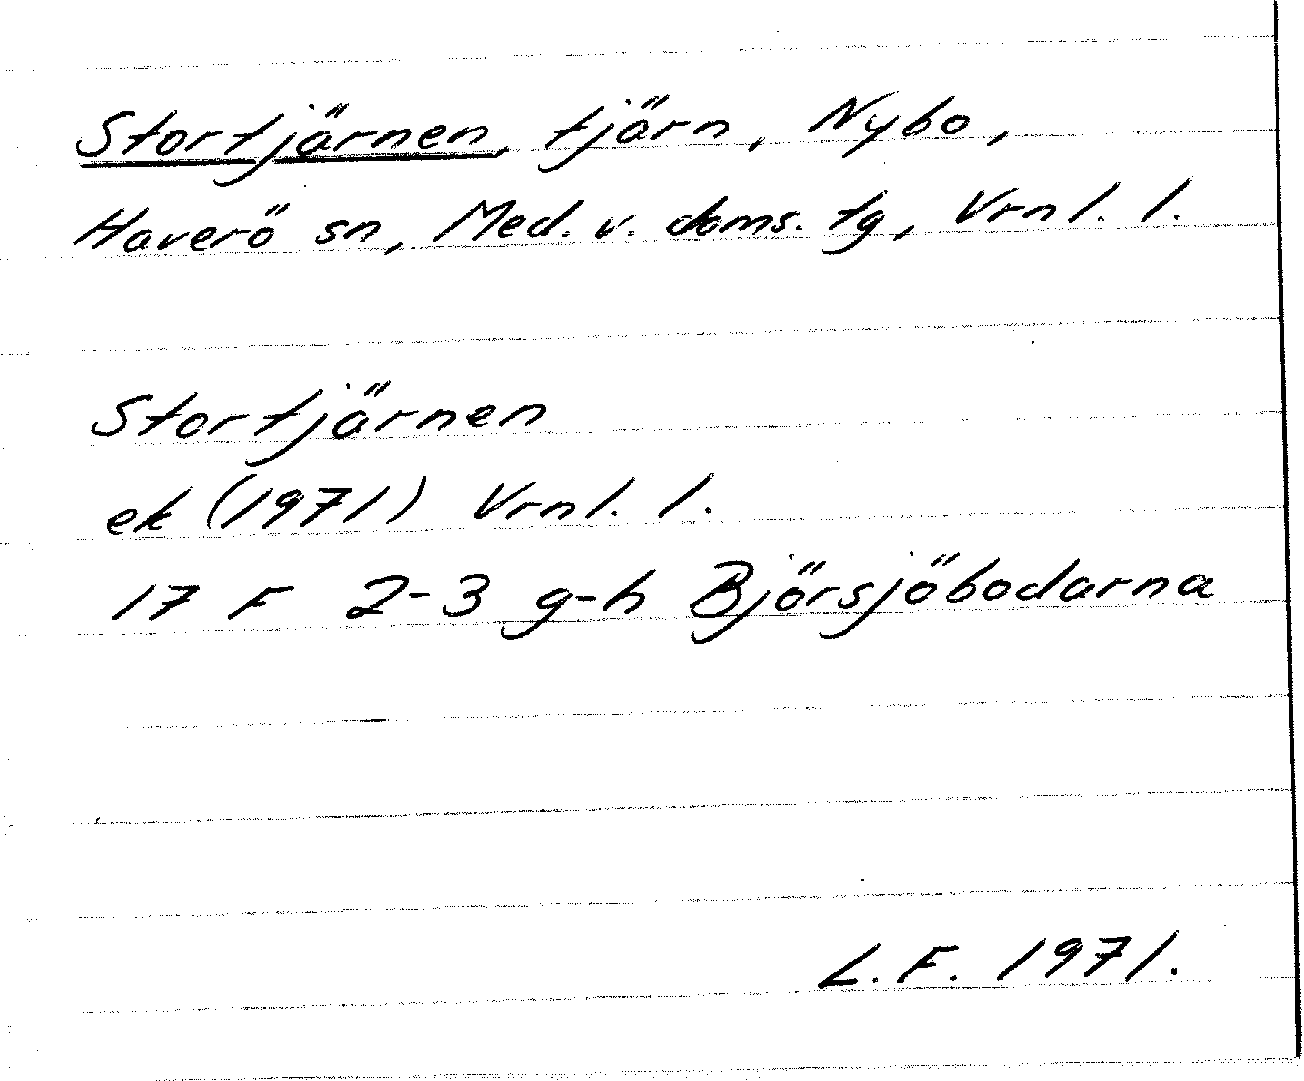 Stortjärnen, tjärn, Nybo,
Haverö sn, Med. v. doms. tg, Vrnl. l.
Stortjärnen
ek (1971) Vrnl. l.
17 F 2-3 g-h Björsjöbodarna
L.F. 1971.